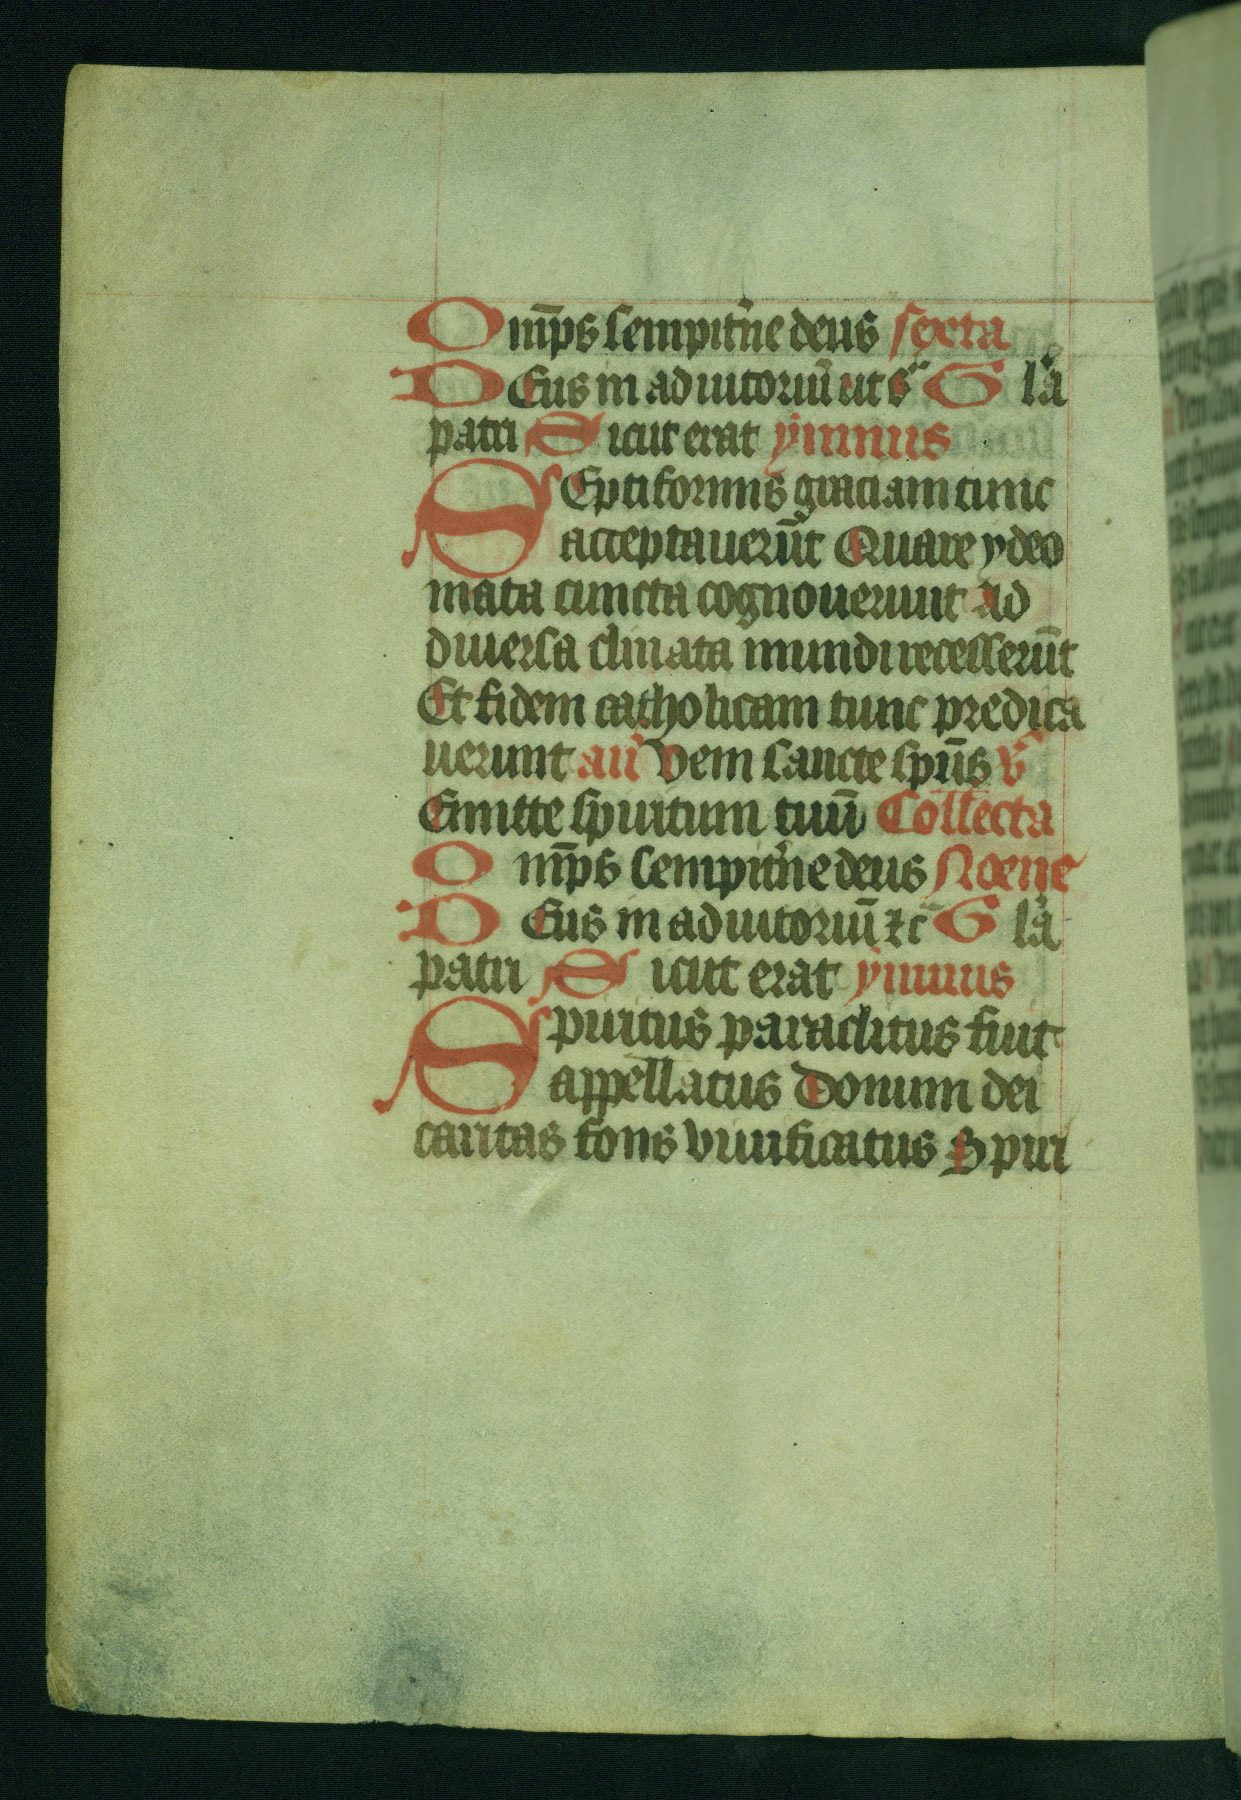 Om̅ps sempit'ne deus sexta
DEus in adiutoriu̅ ut sᵃ Gl'a
patri Sicut erat ymnus
SEptiformis graciam tunc
acceptaueru̅t Quare ydeo
mata cuncta cognouerunt ad
diuersa climata mundi recesseru̅t
Et fidem catholicam tunc predica
uerunt an̅ Veni sancte sp̅us v̕
Emitte spiritum tuu̅ Collecta
Om̅ps sempit'ne deus None
DEus in adiutoriu̅ ⁊c̅ Gl'a
patri Sicut erat ymnus
Spiritus paraclitus fuit
appellatus Donum dei
caritas fons viuificatus Spiri